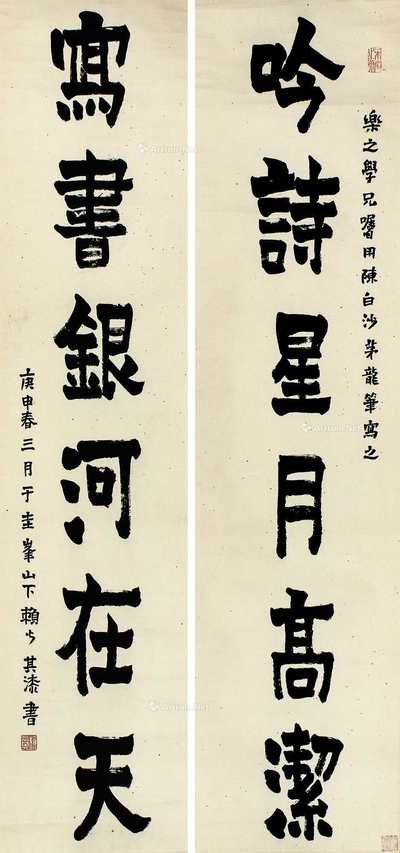 樂之學兄囑用陳白沙茅龍筆寫之
吟詩星月高潔
寫書銀河在天
庚申春三月于圭峯山下賴少其漆書